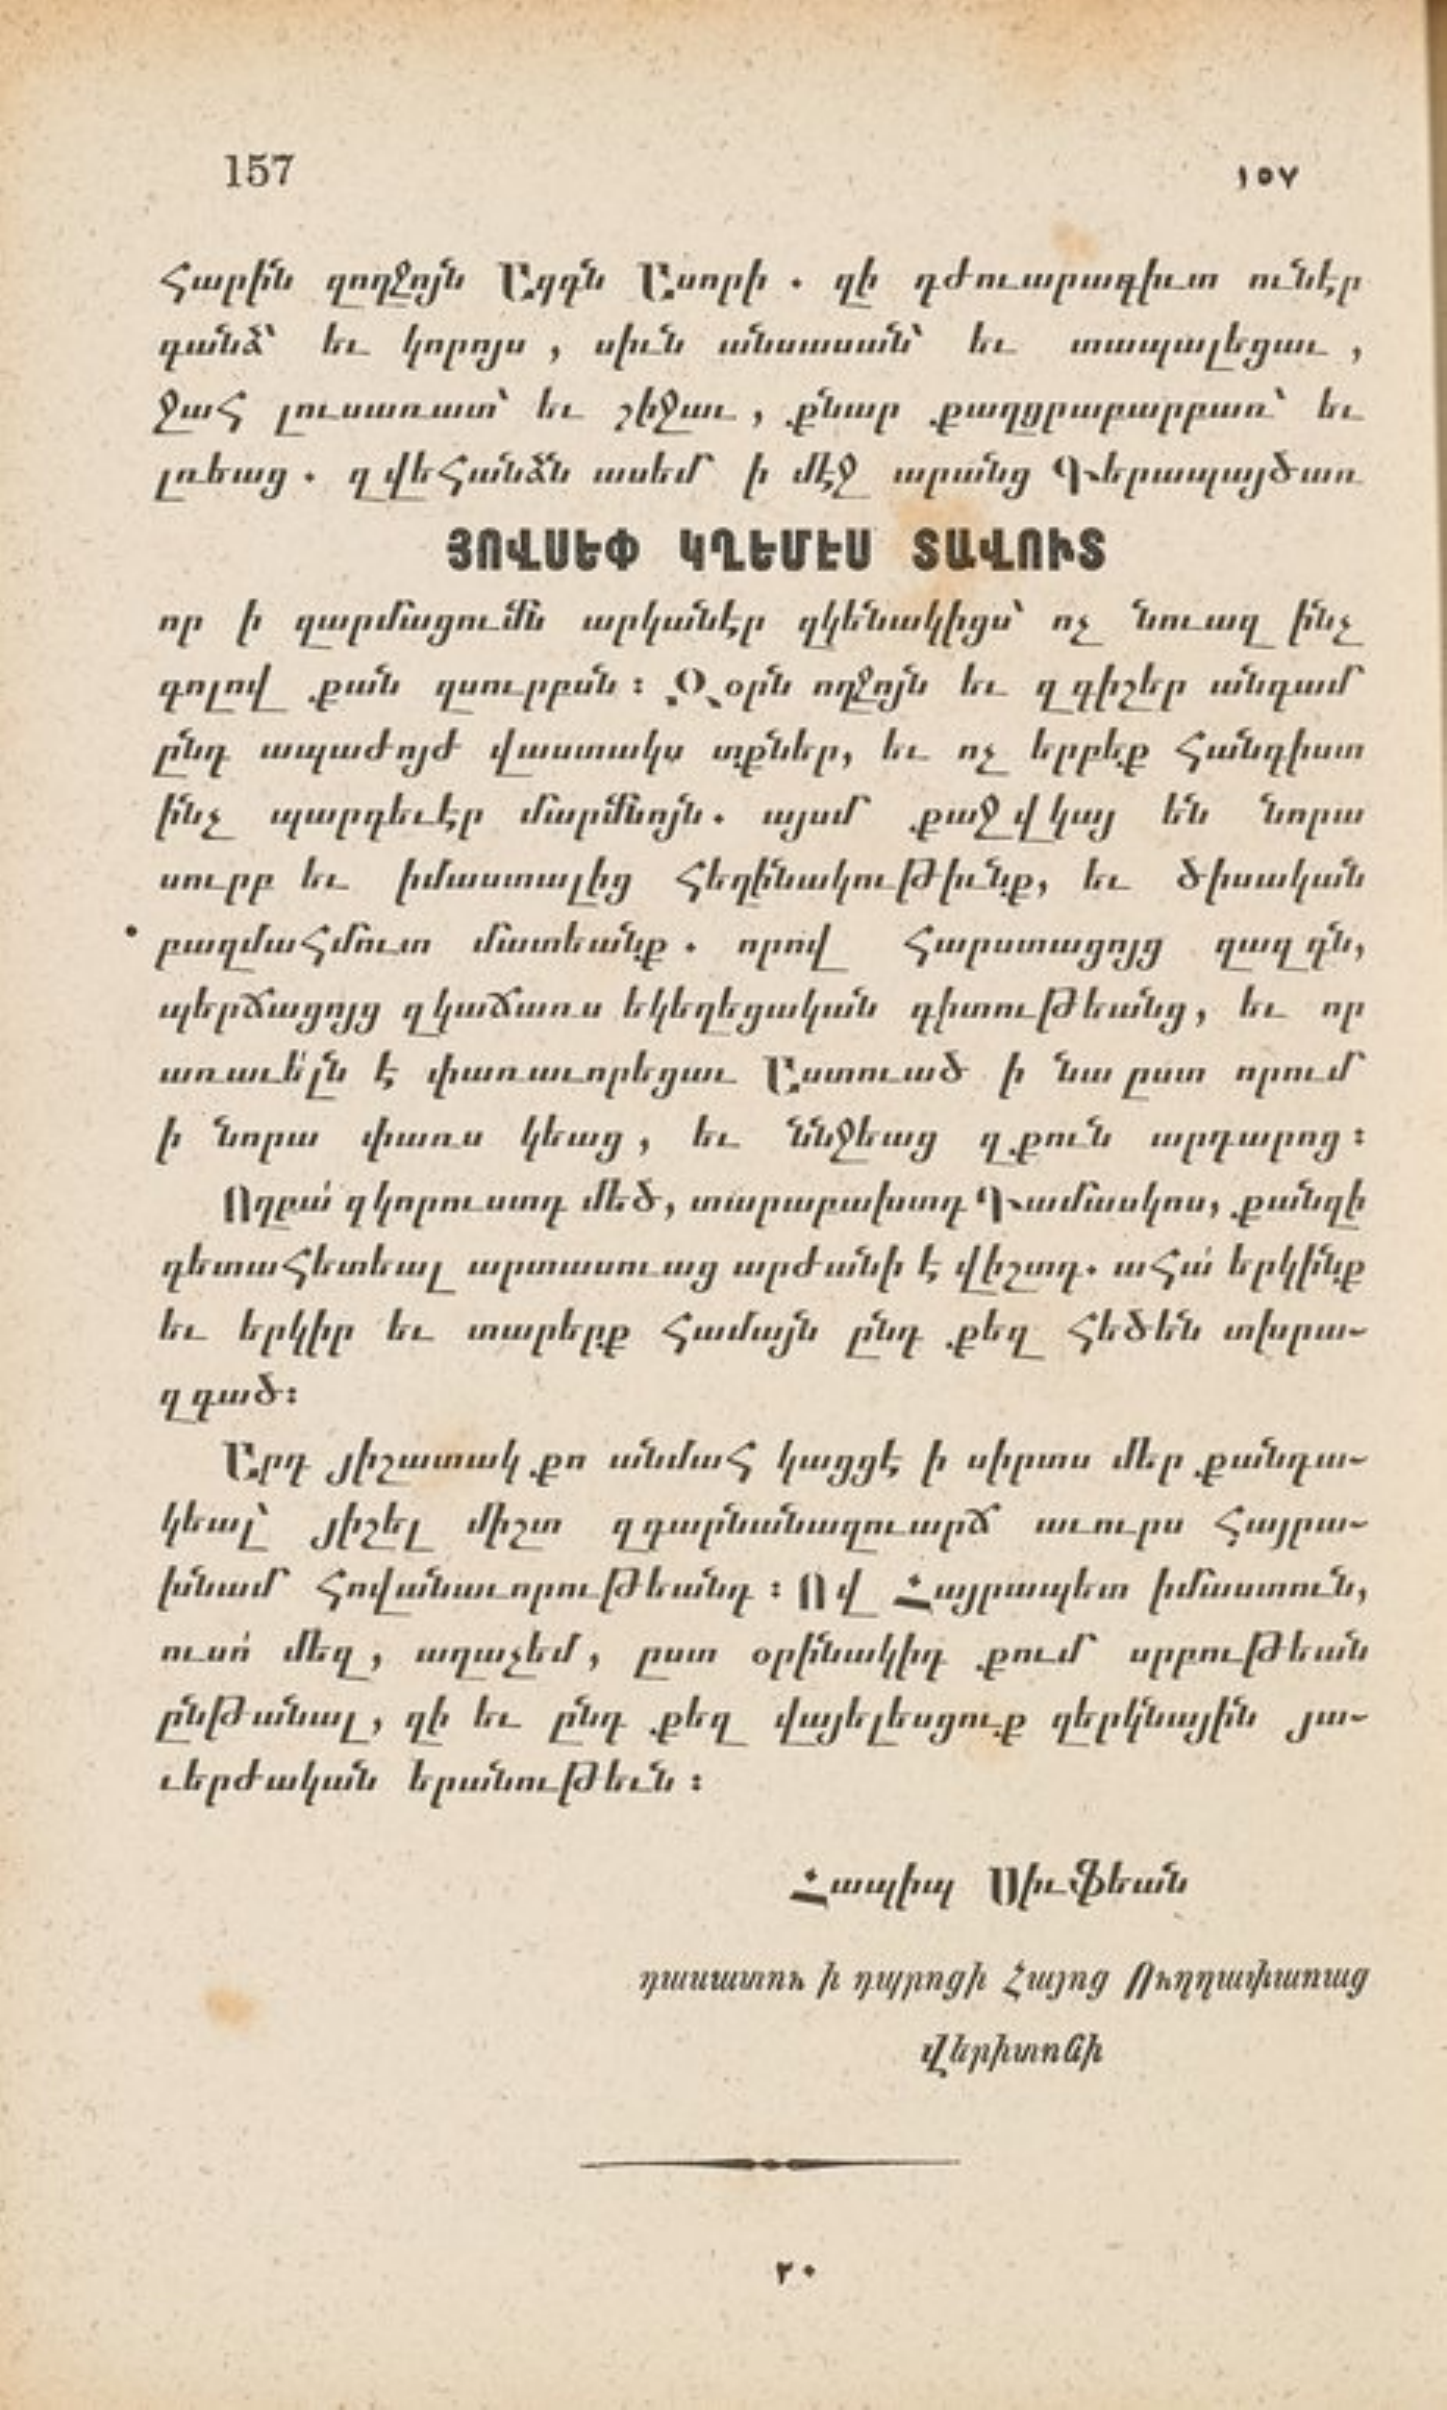 157 ١٥٧
հարին զողջոյն Ազգն Ասորի . զի դժուարագիւտ ունէր
գանձ՝ եւ կորոյս , սիւն անսասան՝ եւ տապալեցաւ ,
ջահ լուսառատ՝ եւ շիջաւ , քնար քաղցրաբարբառ՝ եւ
լռեաց . զվեհանձն ասեմ ի մէջ արանց Գերապայծառ
ՅՈՎՍԵՓ ԿՂԵՄԷՍ ՏԱՎՈՒՏ
որ ի զարմացումն արկանէր զկենակիցս՝ ոչ նուազ ինչ
գոլով քան զսուրբսն ։ Զօրն ողջոյն եւ զգիշեր անգամ
ընդ ապաժոյժ վաստակս տքներ, եւ ոչ երբեք հանգիստ
ինչ պարգեւէր մարմնոյն . այսմ քաջ վկայ են նորա
սուրբ եւ իմաստալից հեղինակութիւնք, եւ ծիսական
բազմահմուտ մատեանք . որով հարստացոյց զազգն,
պերճացոյց զկաճառս եկեղեցական գիտութեանց, եւ որ
առաւե՛լն է փառաւորեցաւ Աստուած ի նա ըստ որում
ի նորա փառս կեաց , եւ ննջեաց զքուն արդարոց ։
Ողբա՛ զկորուստդ մեծ, տարաբախտդ Դամասկոս, քանզի
գետահետեալ արտասուաց արժանի է վիշտդ. ահա՛ երկինք
եւ երկիր եւ տարերք համայն ընդ քեզ հեծեն տխրա-
զգած ։
Արդ յիշատակ քո անմահ կացցէ ի սիրտս մեր քանդա-
կեալ՝ յիշել միշտ զգարնանազուարճ աւուրս հայրա-
խնամ հովանաւորութեանդ ։ Ով Հայրապետ իմաստուն,
ուսո՛ մեզ , աղաչեմ , ըստ օրինակիդ քում սրբութեան
ընթանալ , զի եւ ընդ քեզ վայելեսցուք զերկնային յա-
ւերժական երանութեւն ։
Հապիպ Սիւֆեան
դասատու ի դպրոցի Հայոց Ուղղափառաց
վերիտոնի
٢٠